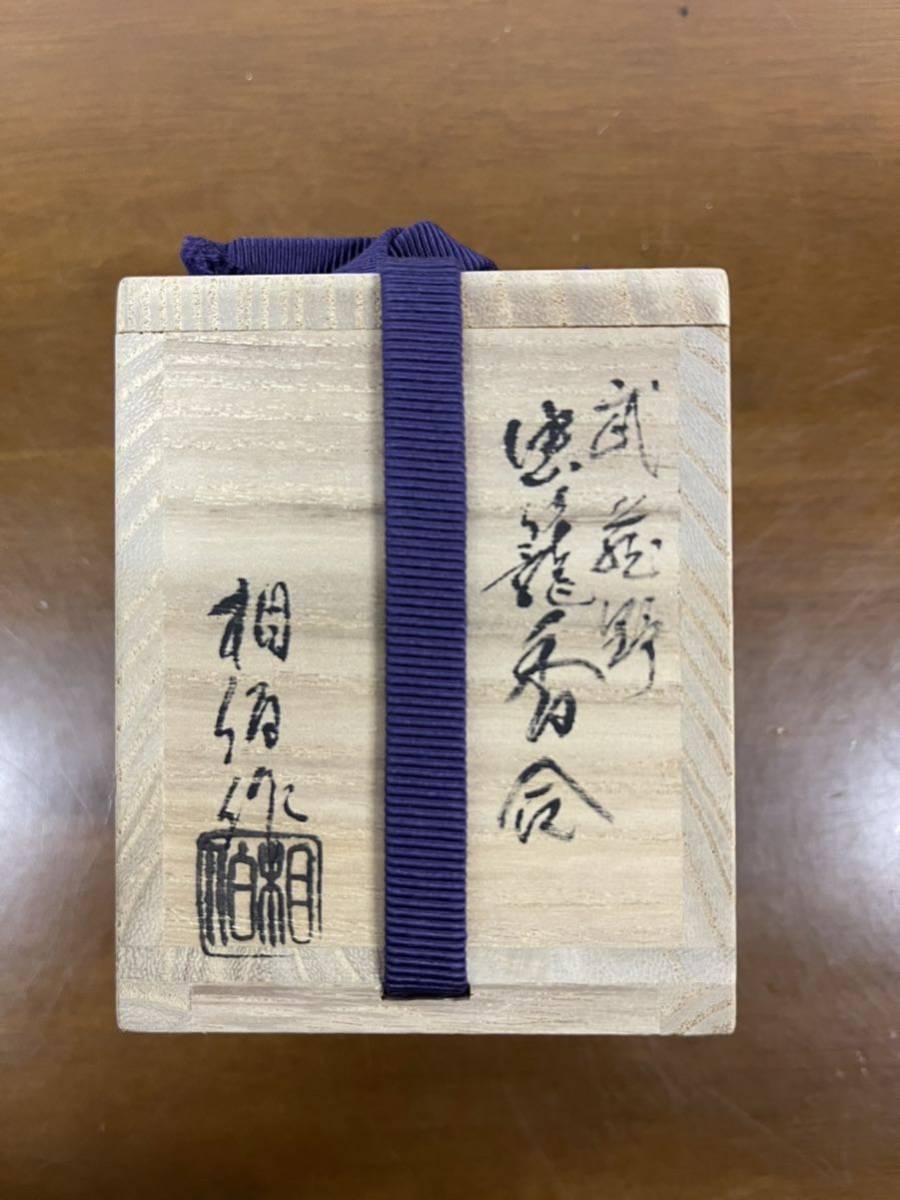 武蔵野
虫籠香合
相伯作
相伯